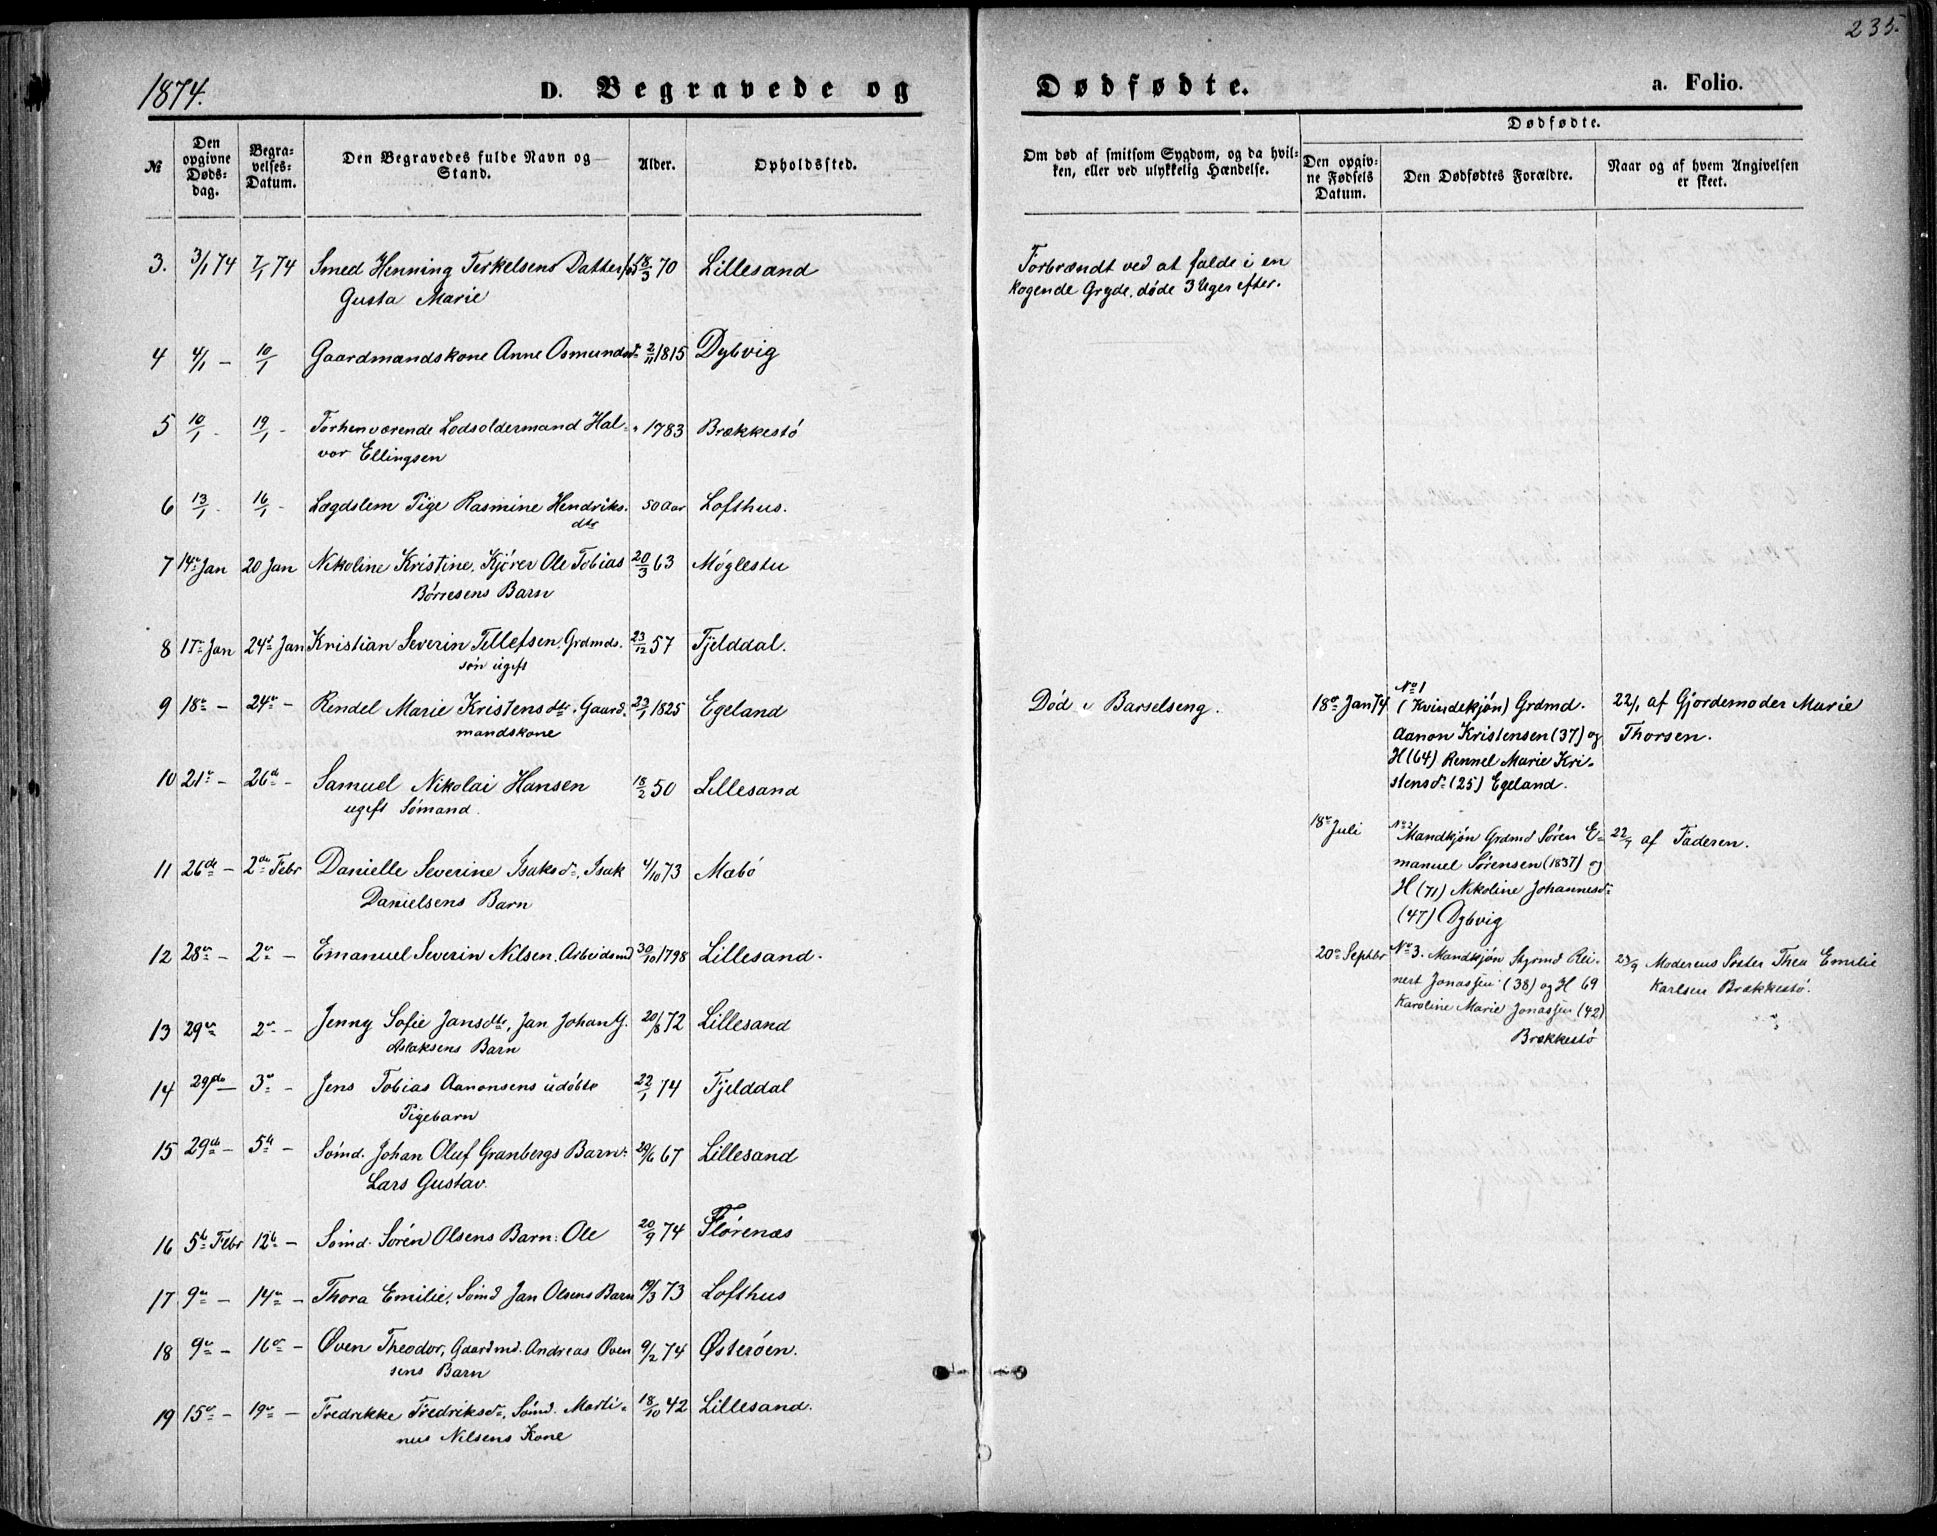 235.
1874.
D. Begravede og Dødfødte. a. Folio.
№
Den opgivne Døds-dag.
Begra-velses-Datum.
Den Begravedes fulde Navn og Stand.
Alder.
Opholdssted.
Om død af smitsom Sygdom, og da hvil-
ken, eller ved ulykkelig Hændelse.
Dødfødte.
Den opgiv-ne Fødsels Datum.
Den Dødfødtes Forældre.
Naar og af hvem Angivelsen
er skeet.
3. 3/1 74 7/1 74 Smed Henning Terkelsens Datter fød 18/3 70 Lillesand Forbrændt ved at falde i en
Gusta Marie kogende Gryde, døde 3 Uger efter.
4 4/1 – 10/1 Gaardmandskone Anne Osmundsd. 2/11 1815 Dybvig
5 10/1 - 19/1 - Forhenværende Lodsoldermand Hal- " 1783 Brækkestø
vor Ellingsen
6 13/1 - 16/1 - Lægdslem Pige Rasmine Hendriks. 50 Aar Lofthus.
dtr
7 14de Jan 20 Jan Nikoline Kristine, Kjører Ole Tobias 20/3 63 Møglestu
Børresens Barn
8 17de Jan 24de Jan Kristian Severin Tellefsen, Grdmds. 23/12 57 Tjelddal.
søn ugift
9 18de – 24de – Rindel Marie Kristensdtr, Gaard- 23/1 1825 Egeland Død i Barselseng.
mandskone
10 21de – 26de – Samuel Nikolai Hansen 18/2 50 Lillesand
ugift Sømand.
11 26de – 2den Febr Danielle Severine Isaksd., Isak 4/10 73 Mæbø
Danielsens Barn
12 28de – 2den – Emanuel Severin Nilsen. Arbeidsmd 30/10 1798 Lillesand.
13 29de 2den – Jenny Sofie Jansdtr, Jan Johan G. 20/8 72 Lillesand
Aslaksens Barn
14 29de – 3de – Jens Tobias Aanonsens udøbte 22/1 74 Tjelddal
Pigebarn
15 29de – 5te – Sømd. Johan Oluf Granbergs Barn: 29/6 67 Lillesand
Lars Gustav.
16 5te Febr 12te – Sømd. Søren Olsens Barn: Ole 20/9 74 Flørenæs
17 9de – 14de – Thora Emilie, Sømd Jan Olsens Barn 19/3 73 Lofthus
18 9de – 16de – Øven Theodor, Gaardmd. Andreas Øven 9/2 74 Østerøen.
sens Barn
19 15de – 19de – Fredrikke Fredriksd., Sømd. Marti- 18/10 42 Lillesand.
nus Nilsens Kone
18de Jan 74 No 1 (Kvindekjøn) Grdmd. 22/1 af Gjordemoder Marie
Aanon Kristensen (37) og Thorsen.
H (64) Rennel Marie Kri-
stensd. (25) Egeland.
18de Juli No 2 Mandkjøn Grdmd Søren E- 22/7 af Faderen.
manuel Sørensen (1837) og
H (71) Nikoline Johannesd.
(47) Dybvig
20de Septbr No 3. Mandkjøn Styrmd Rei- 23/9 Moderens Søster Thea Emilie
nert Jonassen (38) og H 69 Karlsen Brækkestø.
Karoline Marie Jonassen (42)
Brækkestø